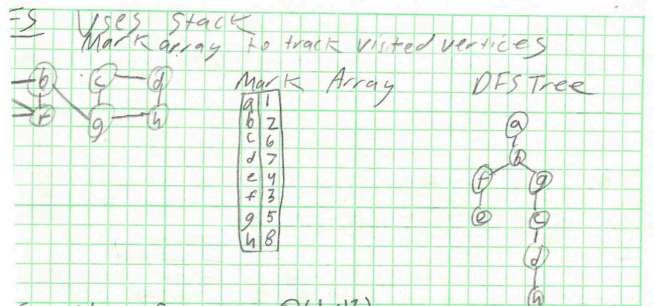 FS Uses Stack
Mark array to track visited vertices
b c d
f g h
Mark Array
a 1
b 2
c 6
d 7
e 4
f 3
g 5
h 8
DFS Tree
a
b
f g
e c
d
h